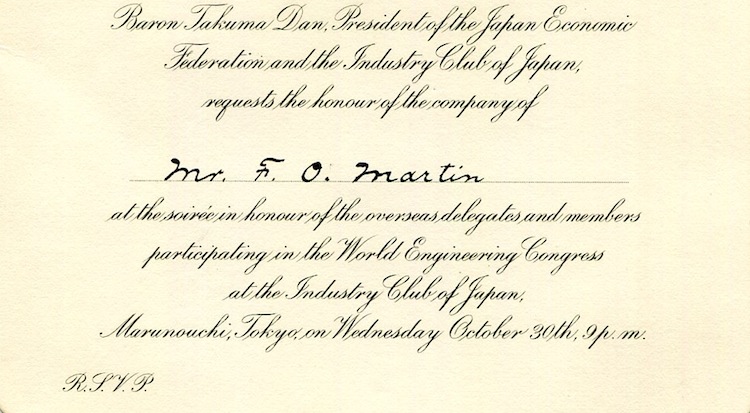 Baron Takuma Dan, President of the Japan Economic
Federation and the Industry Club of Japan,
requests the honour of the company of
Mr. F. O. Martin
at the soirée in honour of the overseas delegates and members
participating in the World Engineering Congress
at the Industry Club of Japan,
Marunouchi, Tokyo, on Wednesday October 30th, 9 p. m.
R. S. V. P.